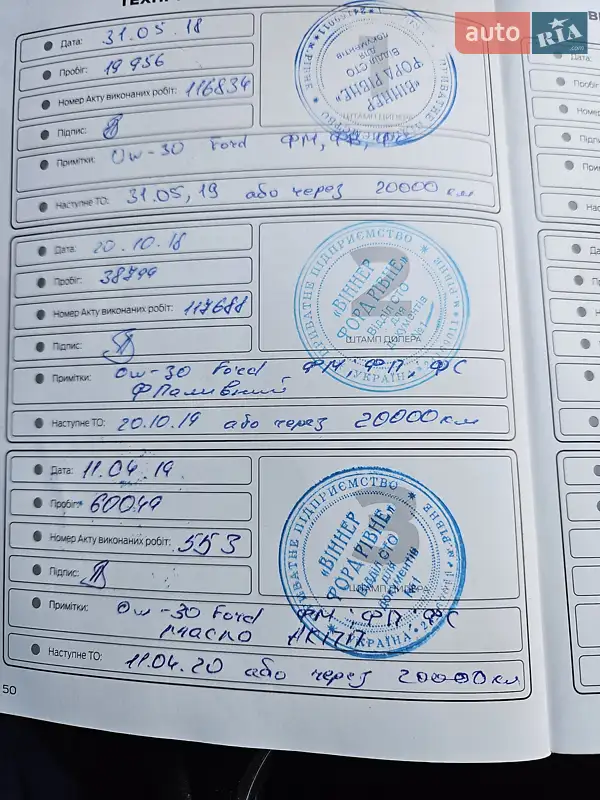 ТЕХН
auto RIA .com
Дата: 31.05.18
Пробіг: 19 956
Номер Акту виконаних робіт: 116834
Підпис:
Примітки: 0w-30 Ford ФМ,
Наступне ТО: 31.05,19 або через 20000 км
1
«ВІННЕР ФОРД РІВНЕ»
ВІДДІЛ СТО
ДЛЯ
ДОКУМЕНТІВ
ШТАМП ДИЛЕРА
Дата: 20.10.18
Пробіг: 38799
Номер Акту виконаних робіт: 117688
Підпис:
Примітки: 0w-30 Ford ФМ, ФП, ФС
ФПаливний
Наступне ТО: 20.10.19 або через 20000 км
2
ПРИВАТНЕ ПІДПРИЄМСТВО * м.РІВНЕ
«ВІННЕР
ФОРД РІВНЕ»
ВІДДІЛ СТО
для
документів
№1
УКРАЇНА
ШТАМП ДИЛЕРА
Дата: 11.04.19
Пробіг: 60049
Номер Акту виконаних робіт: 553
Підпис:
Примітки: 0w-30 Ford ФМ, ФП, ФС
масло АКПП
Наступне ТО: 11.04.20 або через 20000 км
3
ПРИВАТНЕ ПІДПРИЄМСТВО * м.РІВНЕ
«ВІННЕР
ФОРД РІВНЕ»
ВІДДІЛ СТО
для
документів
№1
УКРАЇНА
ШТАМП ДИЛЕРА
50
Дата:
Пробіг